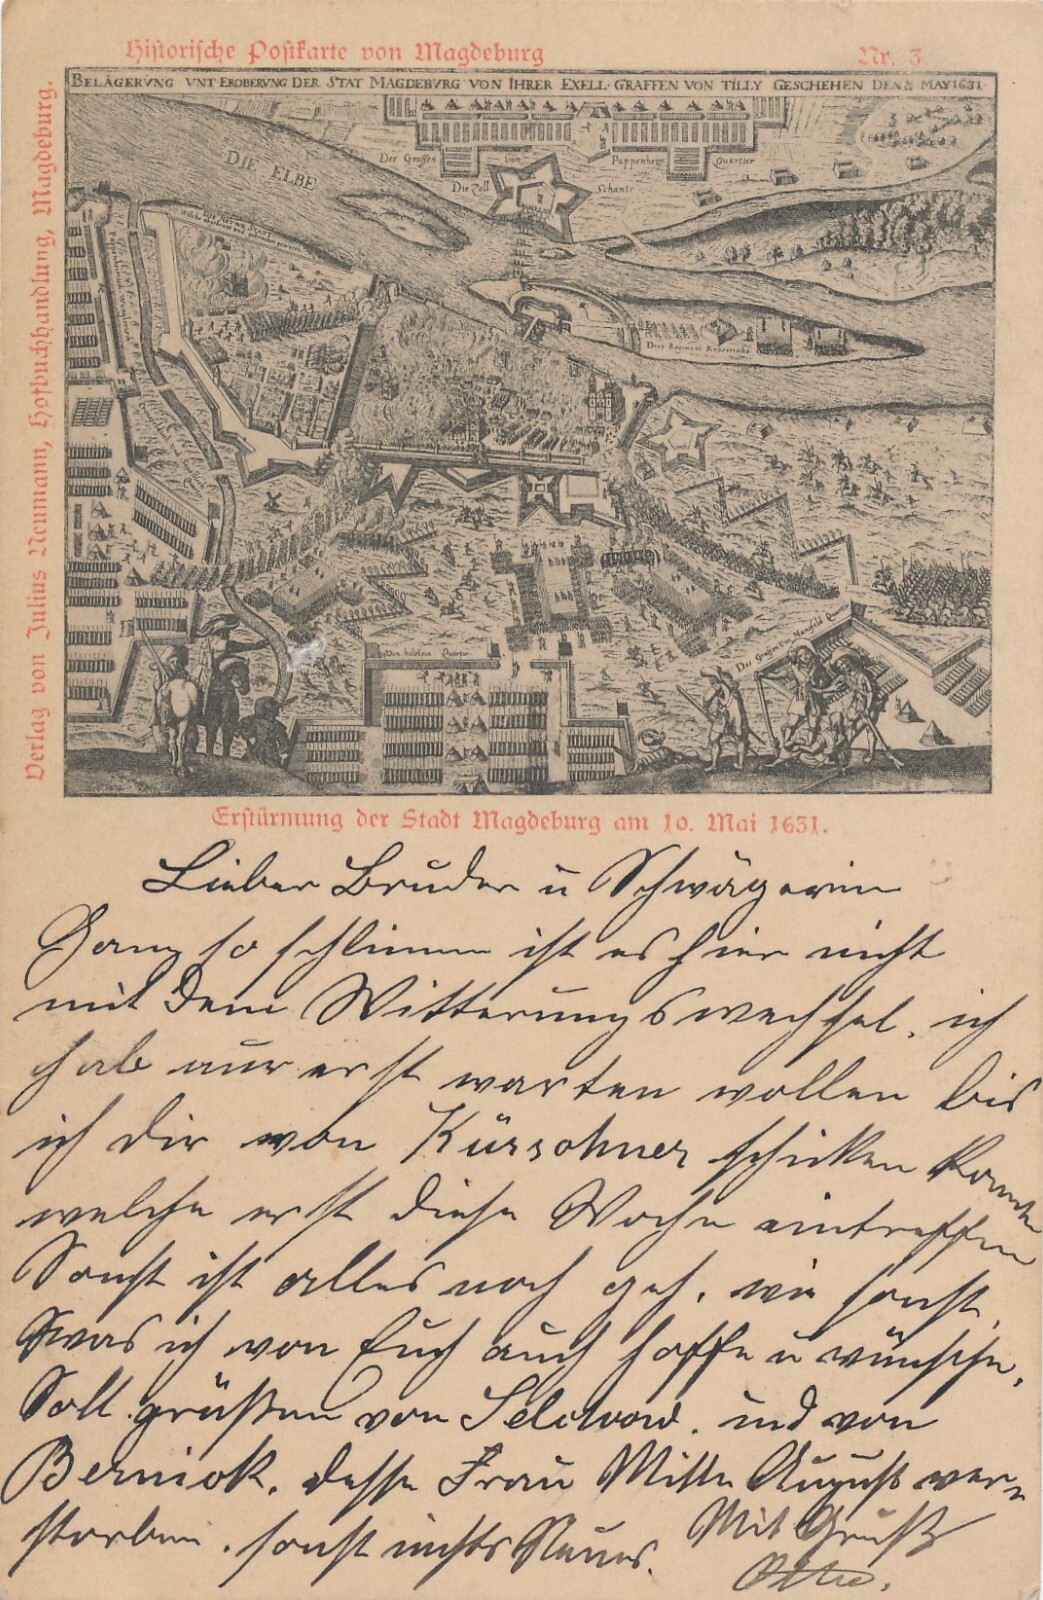 Historische Postkarte von Magdeburg Nr. 3.
Verlag von Julius Neumann, Hofbuchhandlung, Magdeburg.
BELÄGERVNG VNT EROBERVNG DER STAT MAGDEBVRG VON IHRER EXELL. GRAFFEN VON TILLY GESCHEHEN DEN MAY 1631
Der Graffen von Pappenheim Quartier
DIE ELBE
Die Zoll Schantz
Die Newe Stat
Von holstein Quartir
Der Graffen von Mansfeld Quartir
Erstürmung der Stadt Magdeburg am 10. Mai 1631.
Lieber Bruder u Schwägerin
Ganz so schlimm ist es hier nicht
mit dem Witterungswechsel, ich
hab nur erst warten wollen bis
ich dir von Kürschner schicken konnte
welche erst diese Woche eintreffen
Sonst ist alles noch wie sonst,
was ich von Euch auch hoffe u wünsche,
Soll grüßen von und von
Berniok, desse Frau Mitte August ver-
storben, sonst nichts Neues. Mit Gruß
Otto.